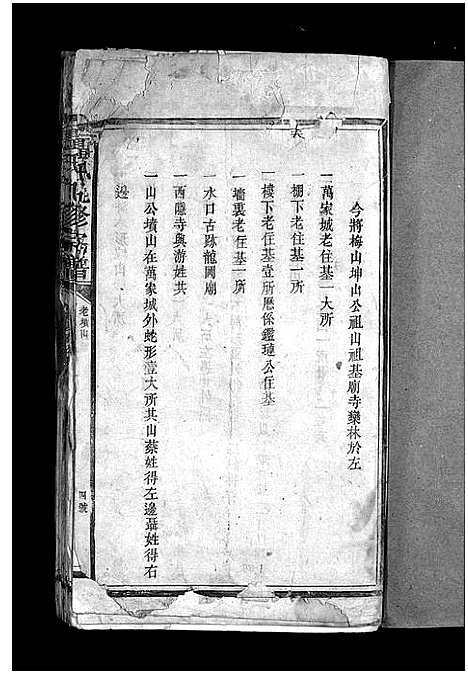 今將梅山坤山公祖山祖基廟寺樂林於左
一萬家城老住基一大所
一棚下老住基一所
一樓下老住基壹所歷係鑑璉公住基
一墻裏老住基一所
一水口古跡龍岡廟
一西隱寺與游姓共
一山公墳山在萬家城外蛇形壹大所其山蔡姓得左邊聶姓得右
邊
修宗譜
老墳山
四號